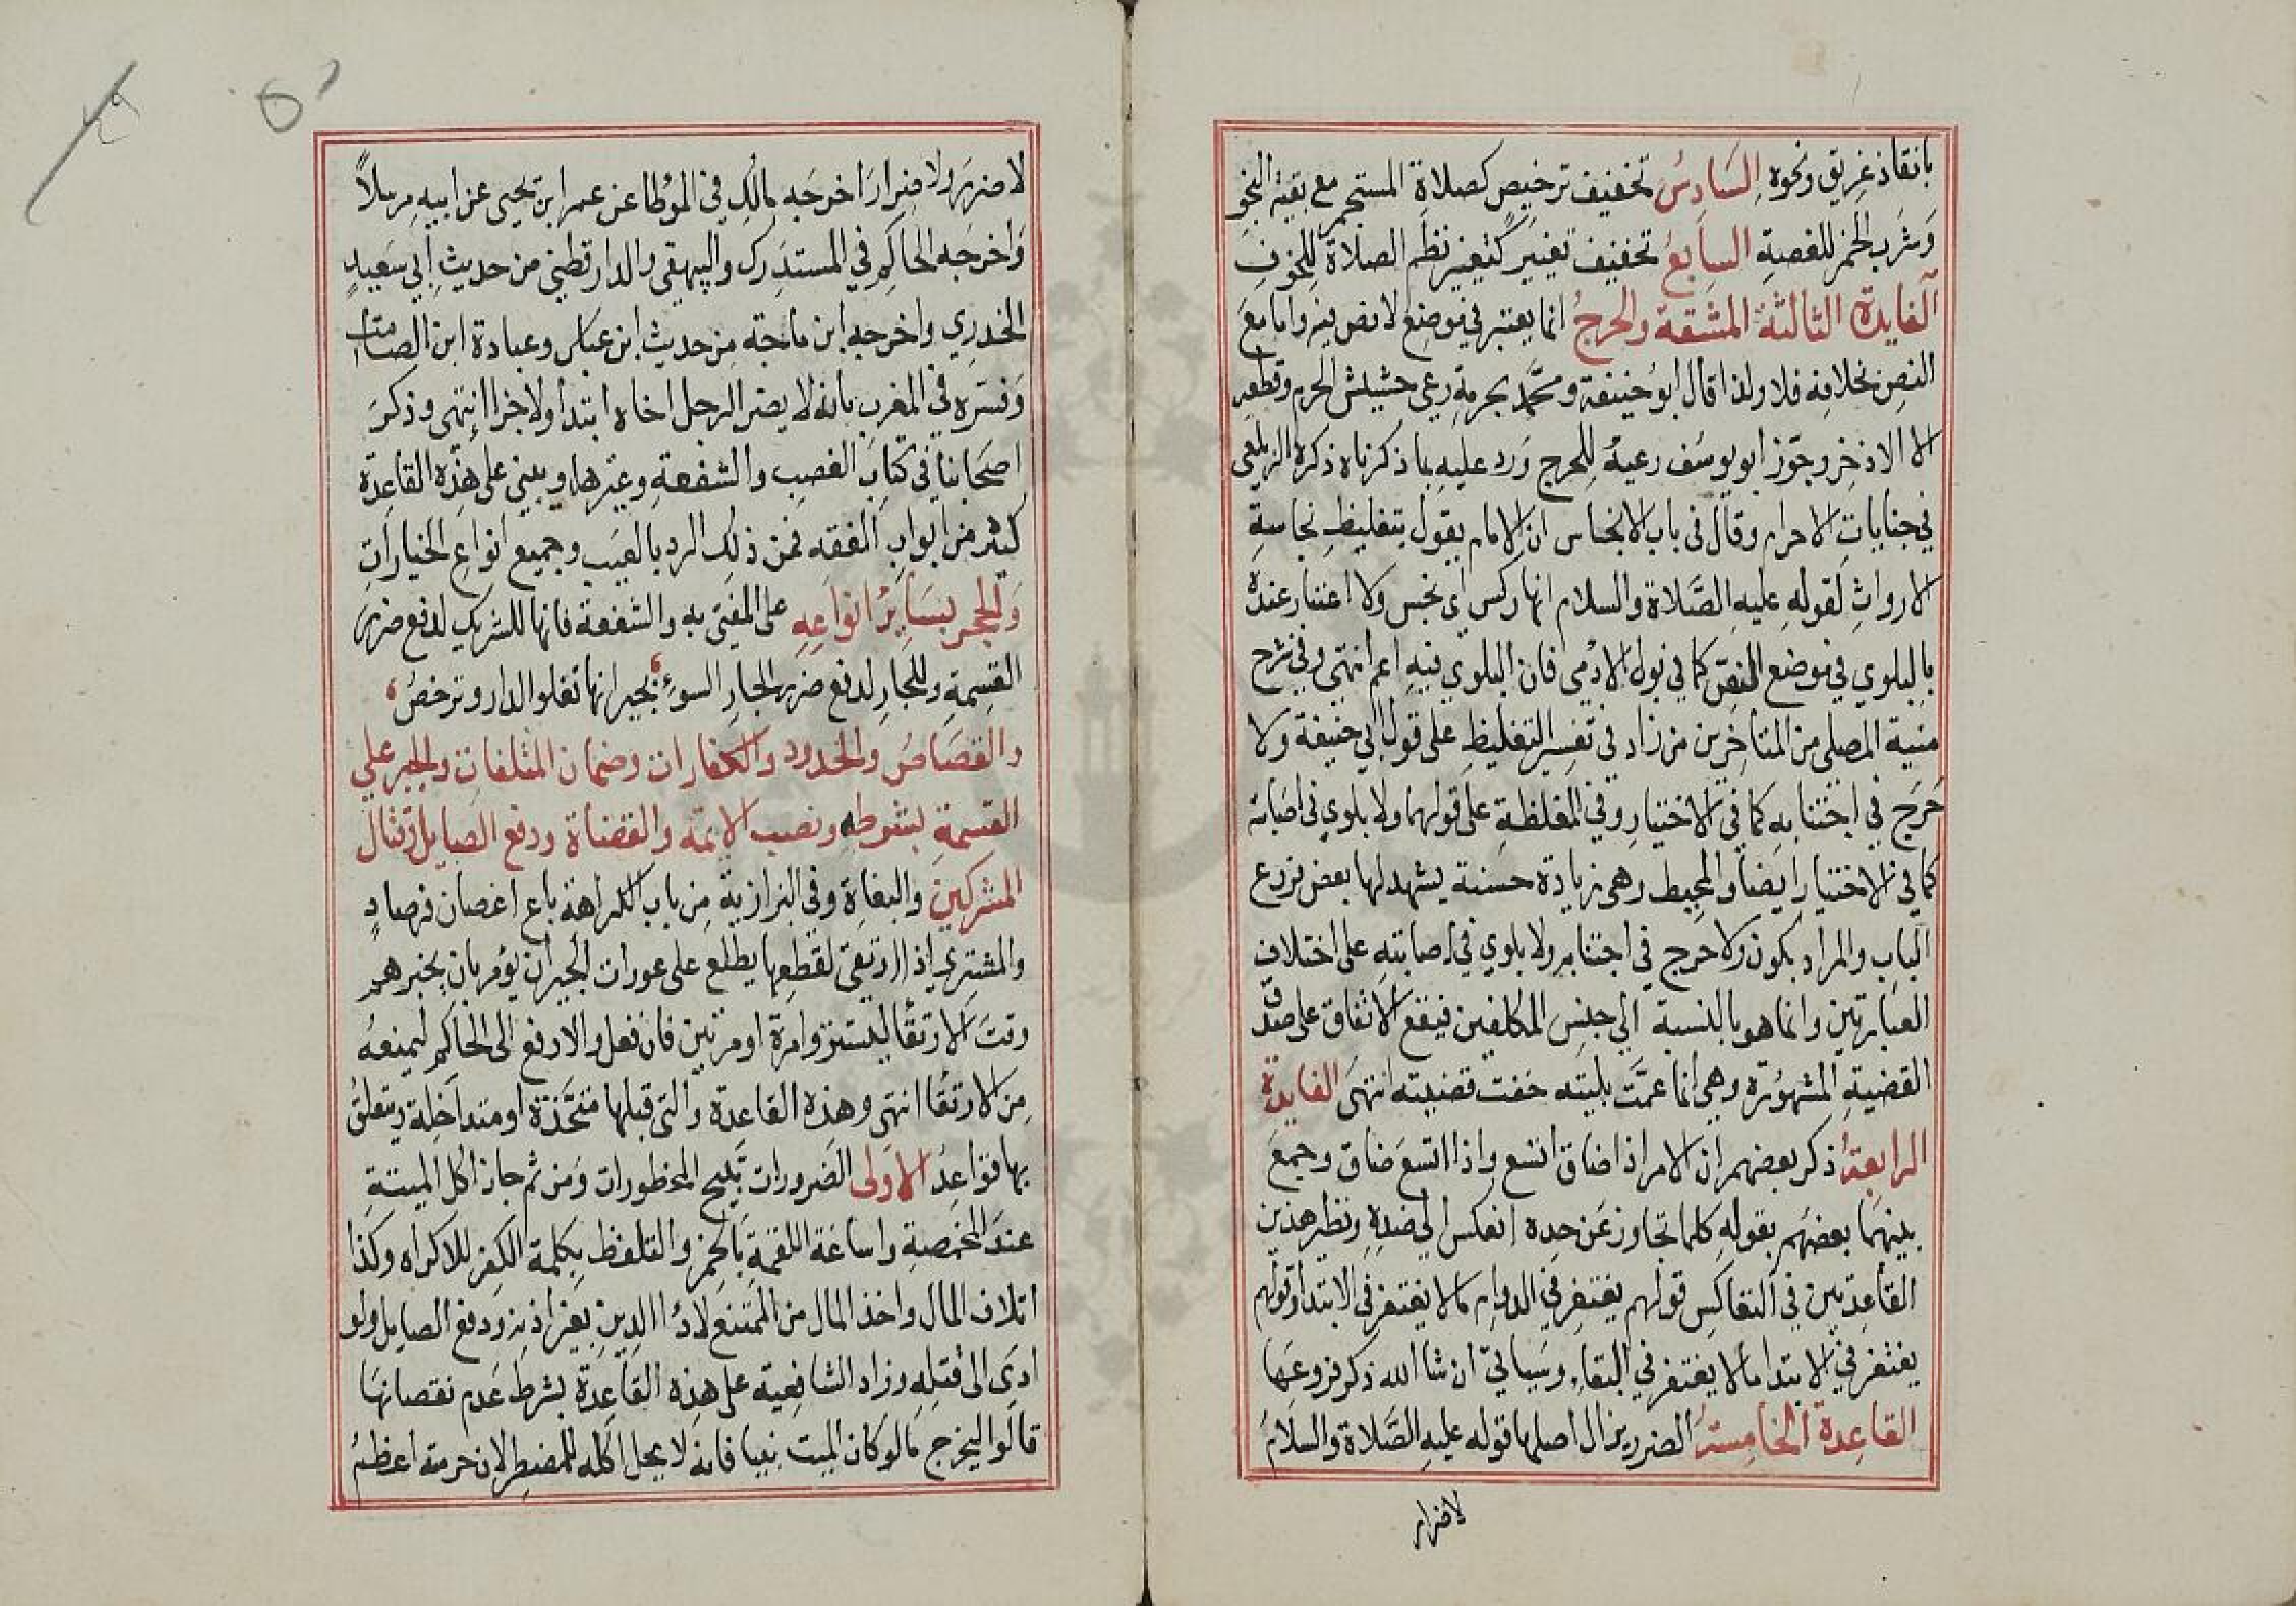 بانقاذ غريق ونحوه السادس تخفيف ترخيص كصلاة المستجمر مع بقية النجو
وشرب الخمر للغصة السابع تخفيف تغيير كتغيير نظم الصلاة للخوف
الفايدة الثالثة المشقة والحرج انما يعتبر في موضع لا نص فيه واما مع
النص بخلافه فلا ولذا قال ابو حنيفة ومحمد بحرمة رعي حشيش الحرم وقطعه
الا الاذخر وجوز ابو يوسف رعيه للحرج ورد عليه بما ذكرناه ذكره الزيلعي
في جنايات الاحرام وقال في باب الانجاس ان الامام يقول بتغليظ نجاسة
الارواث لقوله عليه الصلاة والسلام انها ركس اى نجس ولا اعتبار عنده
بالبلوي في موضع النص كما في بول الادمى فان البلوي فيه اعم انتهى وفي شرح
منية المصلى من المتاخرين من زاد في تفسير التغليظ على قول ابي حنيفة ولا
حرج في اجتنابه كما في الاختيار وفي المغلظة على قولهما ولا بلوي في اصابته
كما في الاختيار ايضا والمحيط وهى زيادة حسنة يشهد لها بعض فروع
الباب والمراد بكون ولا حرج في اجتنابه ولا بلوي في اصابته على اختلاف
العبارتين وانما هو بالنسبة الي جنس المكلفين فيقع الاتفاق على صدق
القضية المشهورة وهي انما عمت بليته خفت قضيته انتهى الفايدة
الرابعة ذكر بعضهم ان الامر اذا ضاق اتسع واذا اتسع ضاق وجمع
بينهما بعضهم بقوله كلما تجاوز عن حده انعكس الي ضده ونظير هذين
القاعدتين في التعاكس قولهم يغتفر في الدوام ما لا يغتفر في الابتدا وقولهم
يغتفر في الابتدا ما لا يغتفر في البقاء وسياتي ان شا الله ذكر فروعها
القاعدة الخامسة الضرر يزال اصلها قوله عليه الصلاة والسلام
لا ضرار
لا ضرر ولا ضرار اخرجه مالك في الموطا عن عمر ابن يحيى عن ابيه مرسلاً
واخرجه الحاكم في المستدرك والبيهقي والدارقطني من حديث ابي سعيد
الخدري واخرجه ابن ماجه من حديث ابن عباس وعبادة ابن الصامت
وفسره في المغرب بانه لا يضر الرجل اخاه ابتدأ ولا جزا انتهى وذكر
اصحابنا في كتاب الغصب والشفعة وغيرها ويبني على هذه القاعدة
كثير من ابواب الفقه فمن ذلك الرد بالعيب وجميع انواع الخيارات
والحجر بساير انواعه على المفتى به والشفعة فانها للشريك لدفع ضرر
القسمة وللجار لدفع ضرر الجار السوء بجيرانها تغلو الدار وترخص
والقصاص والحدود والكفارات وضمان المتلفات والجبر علي
القسمة بشروطه ونصب الايمة والقضاة ودفع الصايل وقتال
المشركين والبغاة وفي البزازية من باب الكراهة باع اغصان فرصاد
والمشتري اذا ارتقى لقطعها يطلع على عورات الجيران يؤمر بان يخبرهم
وقت الارتقا ليستتروا مرة او مرتين فان فعل والا رفع الى الحاكم ليمنعه
من الارتقا انتهى وهذه القاعدة والتى قبلها متحدة او متداخلة ويتعلق
بها قواعد الاولى الضرورات تبيح المحظورات ومن ثم جاز اكل الميتة
عند المخمصة واساغة اللقمة بالخمر والتلفظ بكلمة الكفر للاكراه وكذا
اتلاف المال واخذ المال من الممتنع لادا الدين بغير اذنه ودفع الصايل ولو
ادى الى قتله وزاد الشافعية على هذه القاعدة بشرط عدم نقصانها
قالوا ليخرج ما لو كان الميت نبيا فانه لا يحل اكله للمضطر لان حرمته اعظم